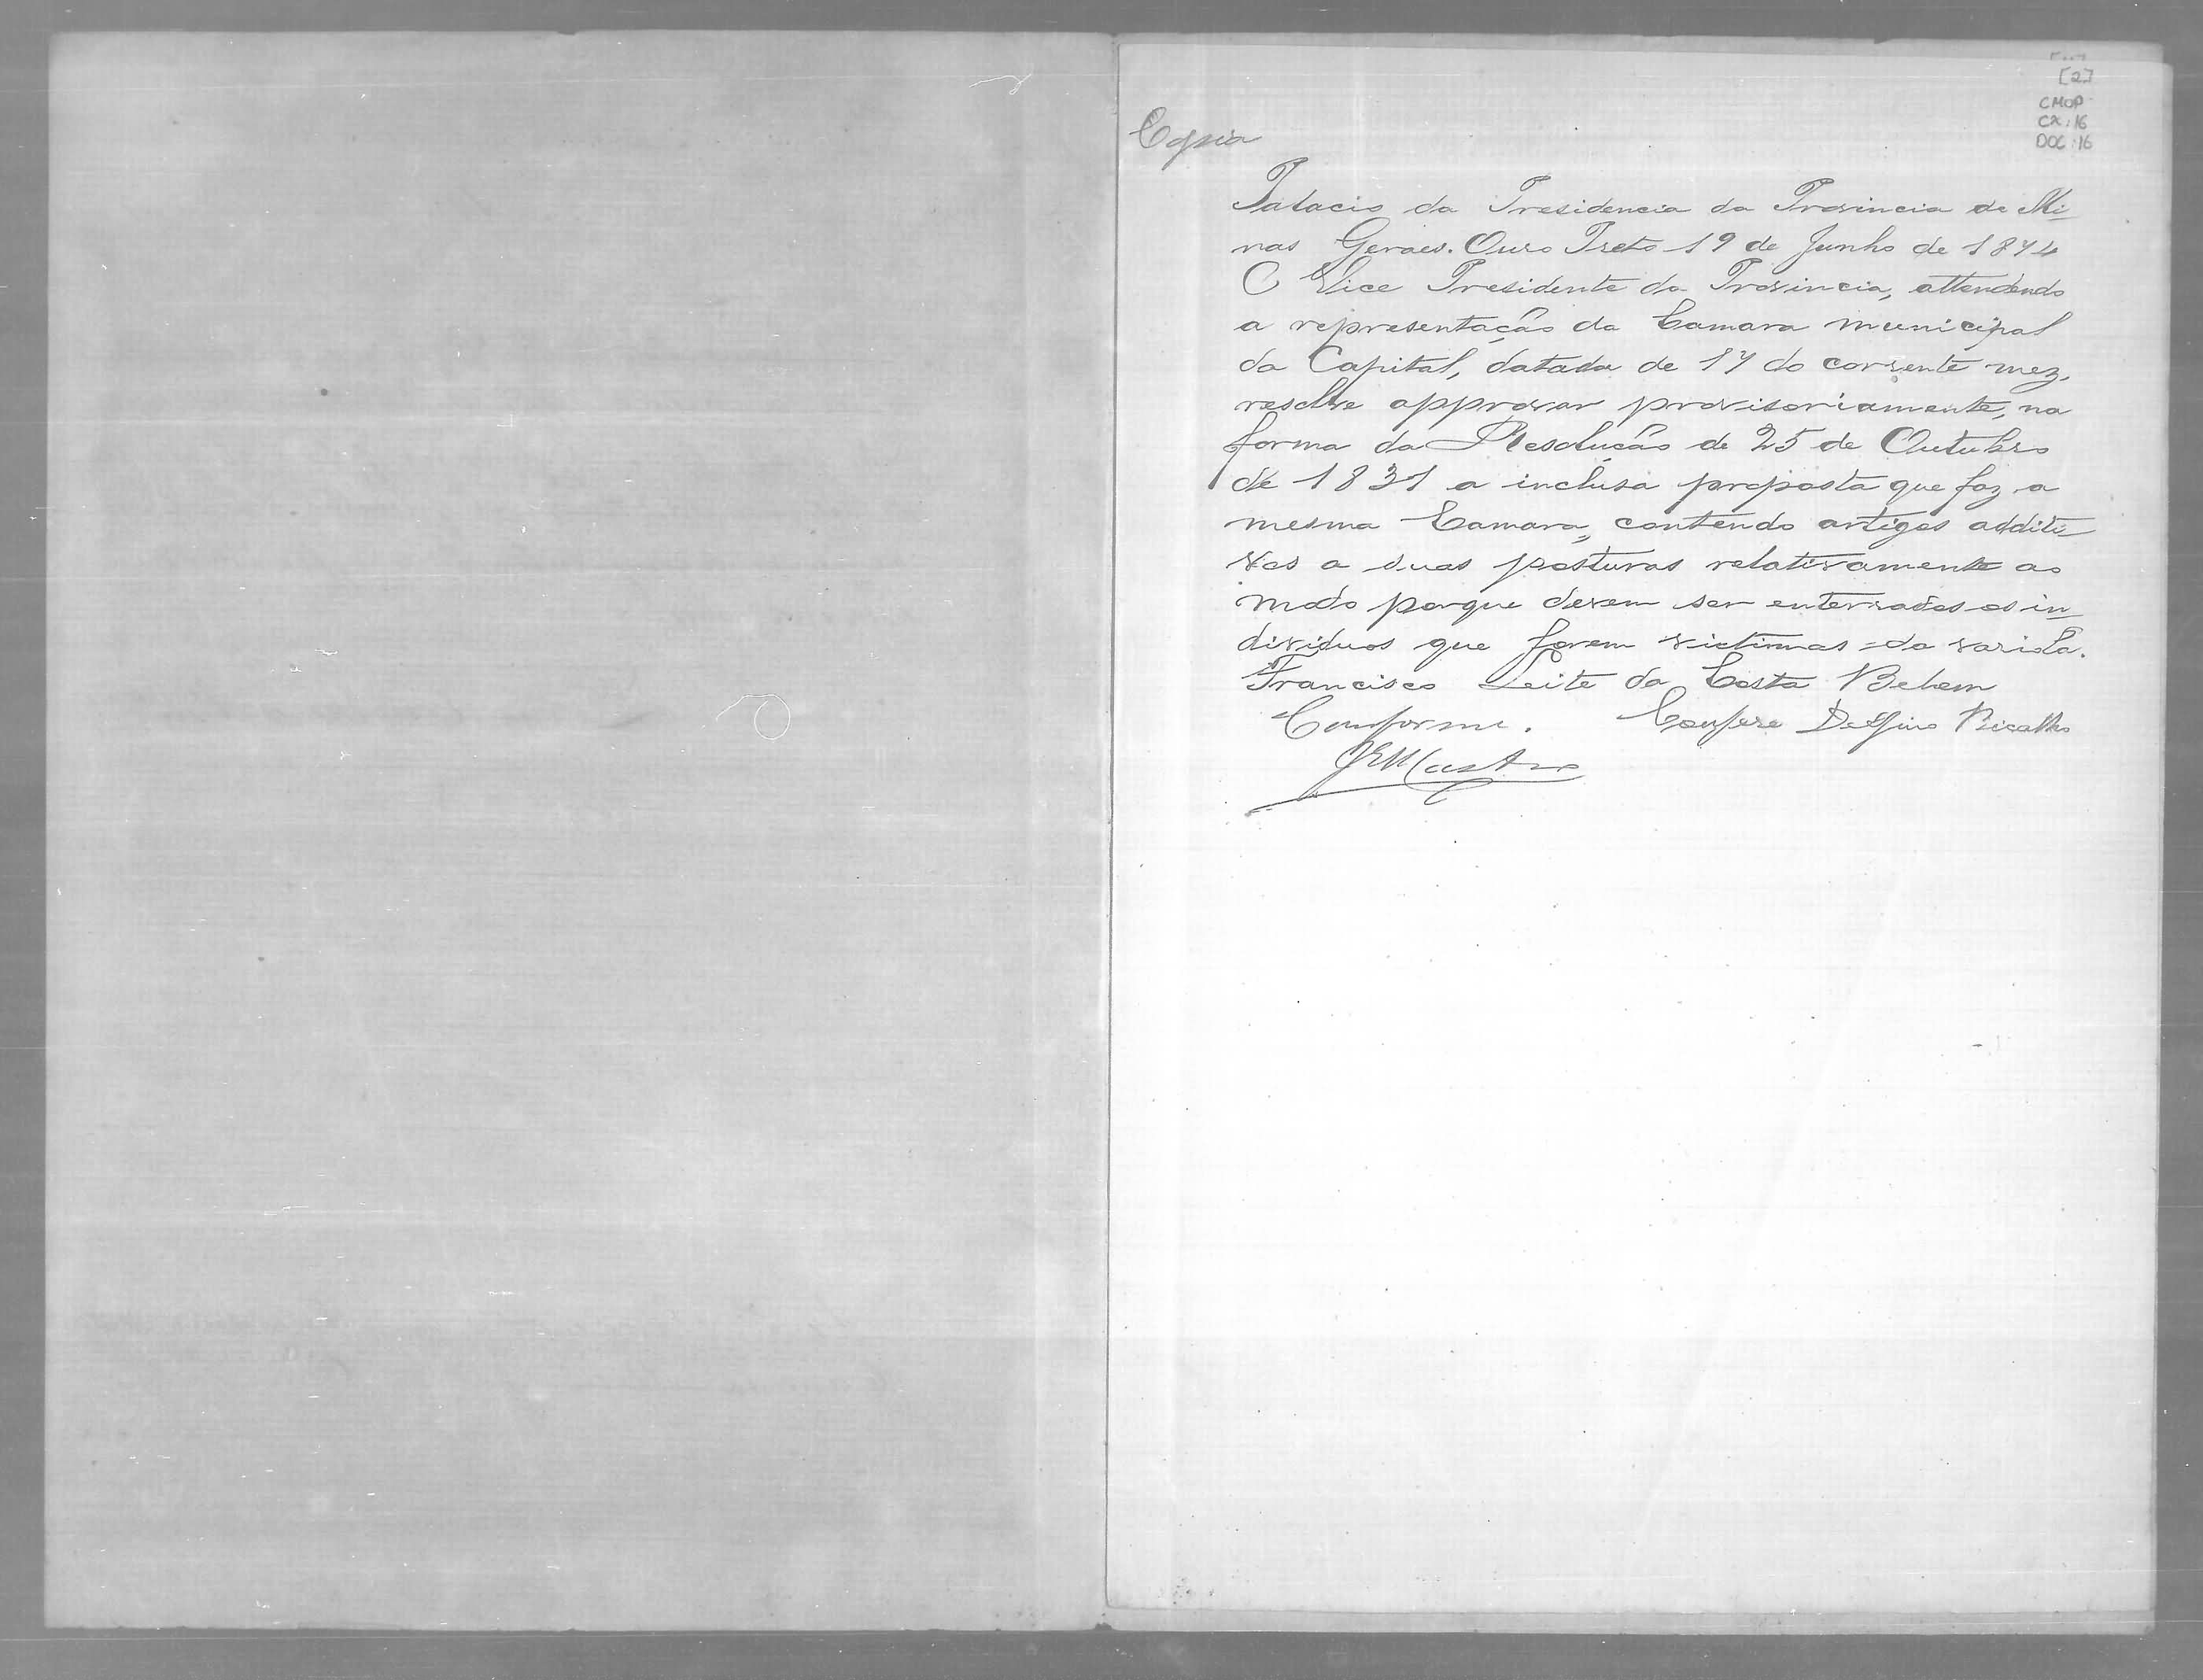 [2]
CMOP
CX: 16
DOC: 16
Copia
Palacio da Presidencia da Provincia de Mi-
nas Geraes. Ouro Preto 19 de Junho de 1874
O Vice Presidente da Provincia, attendendo
a representação da Camara municipal
da Capital, datada de 17 do corrente mez,
resolve approvar provisoriamente, na
forma da Resolução de 25 de Outubro
de 1831 a inclusa proposta que faz a
mesma Camara, contendo artigos additi-
vos a suas posturas relativamente ao
modo porque devem ser enterrados os in-
dividuos que forem victimas da variola.
Francisco Leite da Costa Belem
Conforme. Confere Delfino Bicalho